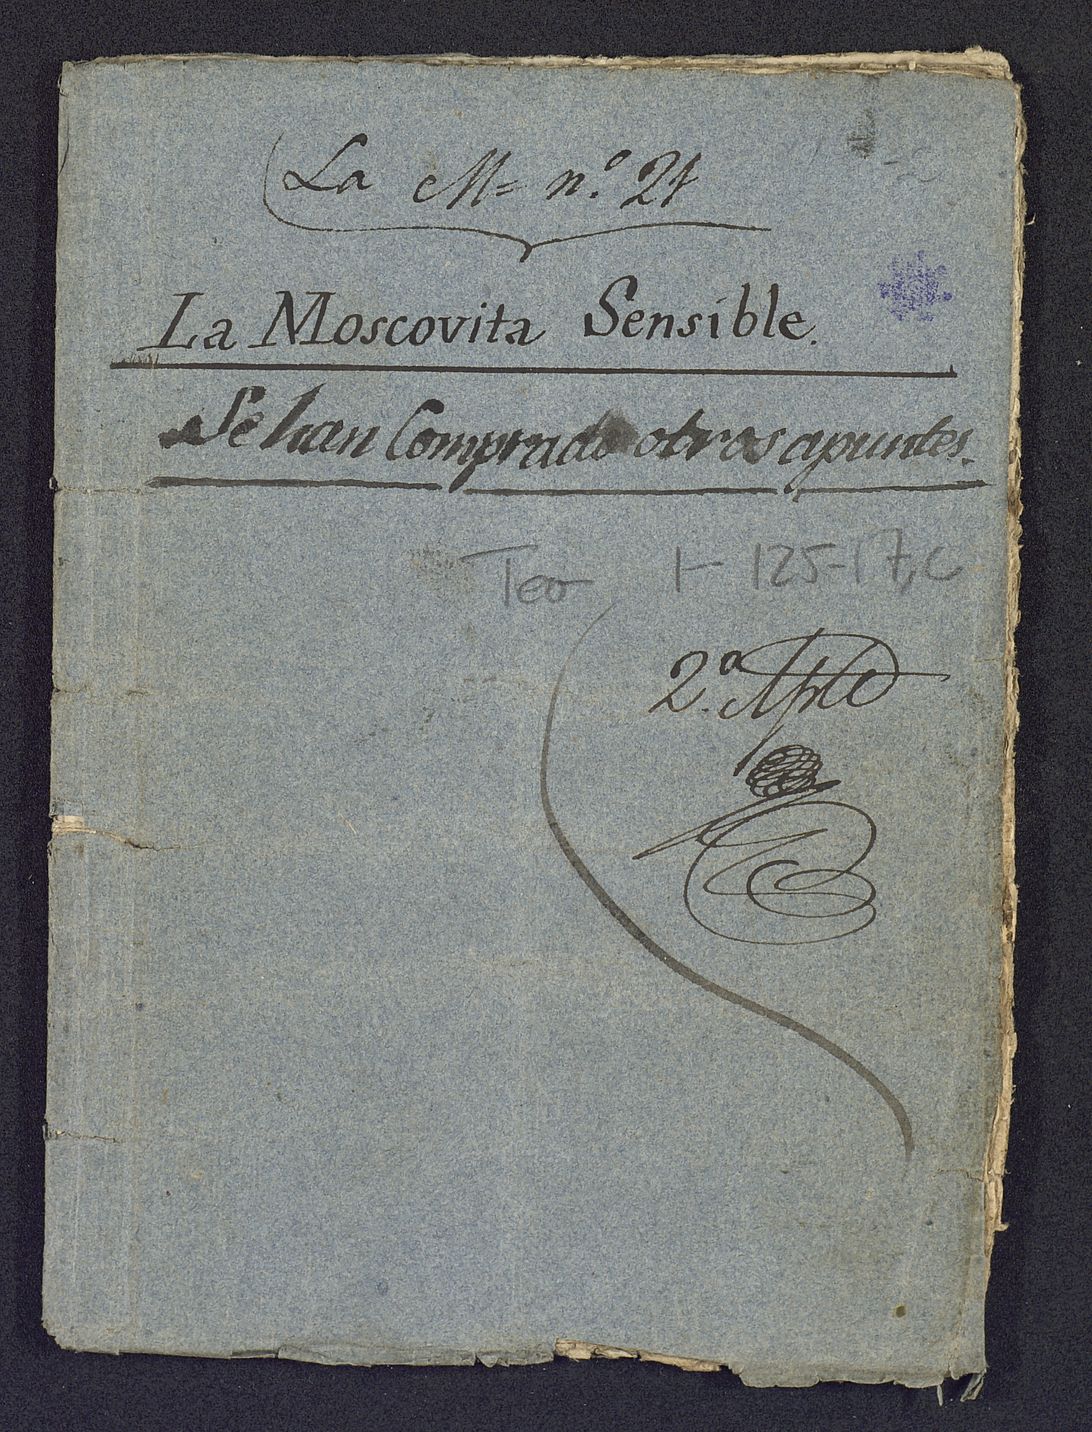 La M= n.º 21
La Moscovita Sensible.
Se han Comprado otros apuntes.
Tea 1-125-17, C
2.º Apte